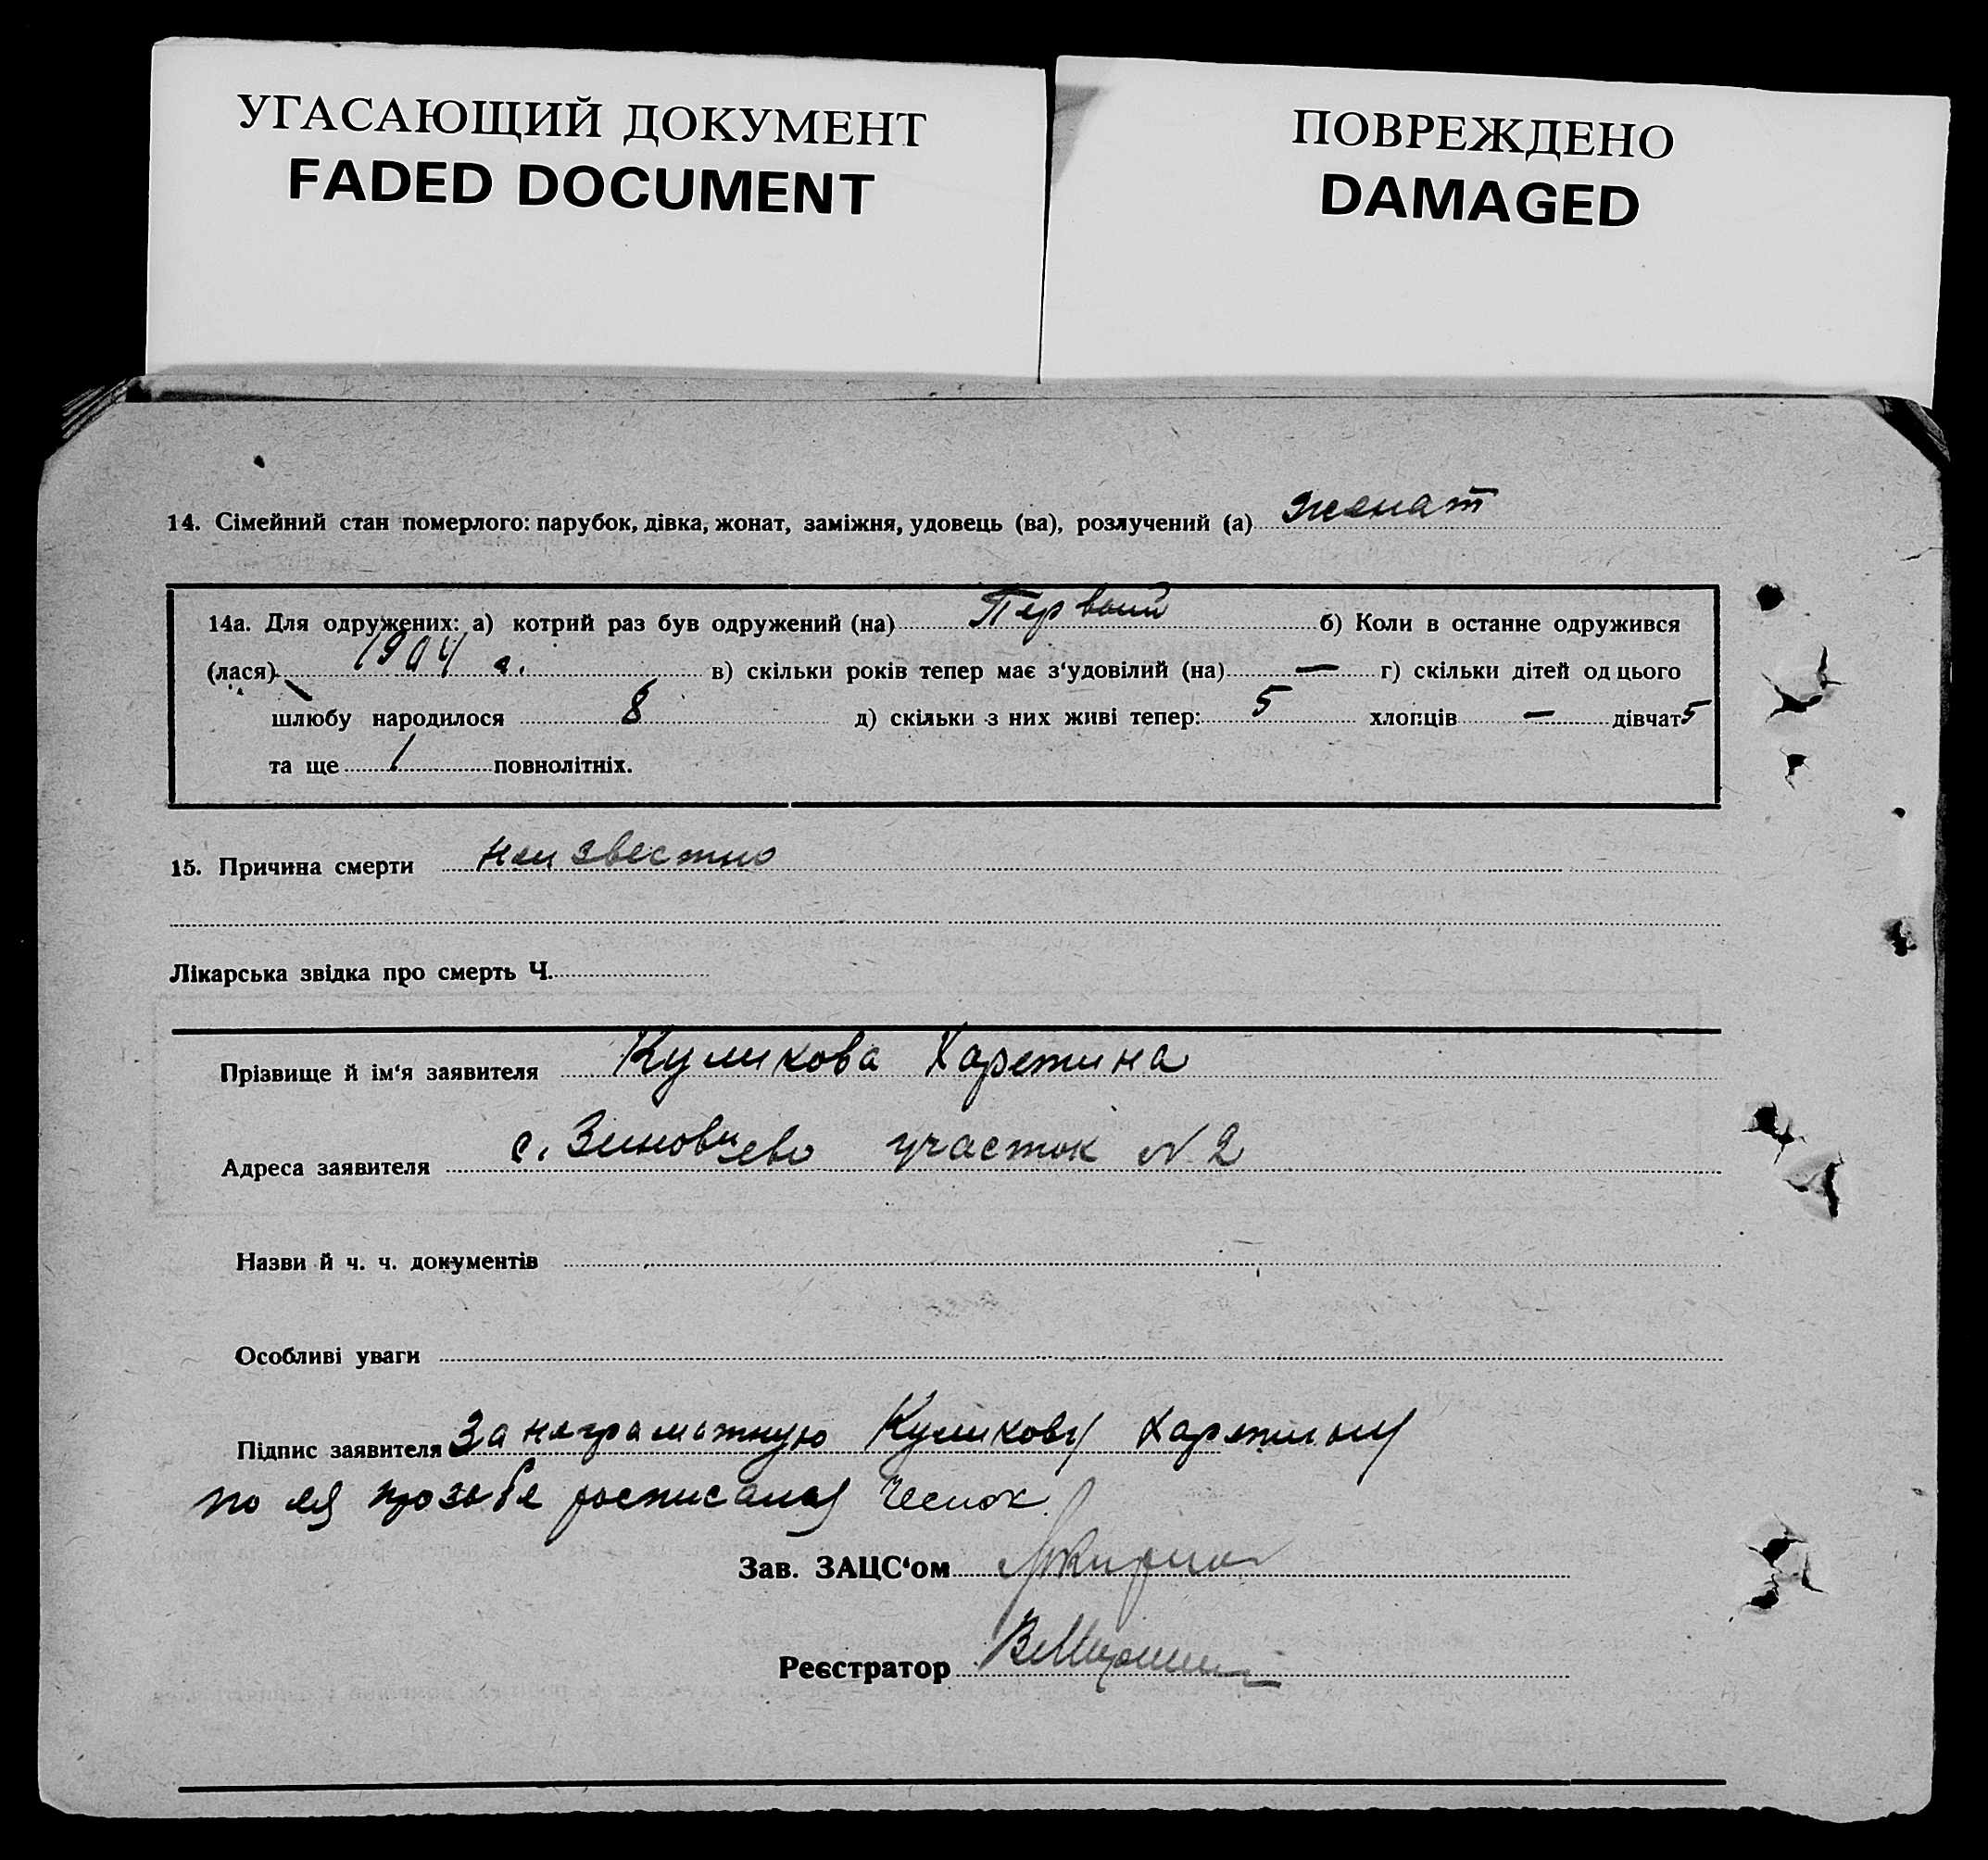 УГАСАЮЩИЙ ДОКУМЕНТ
FADED DOCUMENT
ПОВРЕЖДЕНО
DAMAGED
14. Сімейний стан померлого: парубок, дівка, жонат, заміжня, удовець (ва), розлучений (а) женат
14а. Для одружених: а) котрий раз був одружений (на) Первый б) Коли в останнє одружився
(лася) 1904 г. в) скільки років тепер має з'удовілий (на) — г) скільки дітей од цього
шлюбу народилося 8 д) скільки з них живі тепер: 5 хлопців — дівчат 5
та ще 1 повнолітніх.
15. Причина смерти неизвестно
Лікарська звідка про смерть Ч.
Прізвище й ім'я заявителя Куликова Харетина
Адреса заявителя с. Зиновиево участок N 2
Назви й ч. ч. документів
Особливі уваги
Підпис заявителя За награмотную Куликову Харетину
по ея прозьбе росписалая Чеснок
Зав. ЗАЦС'ом
Реєстратор